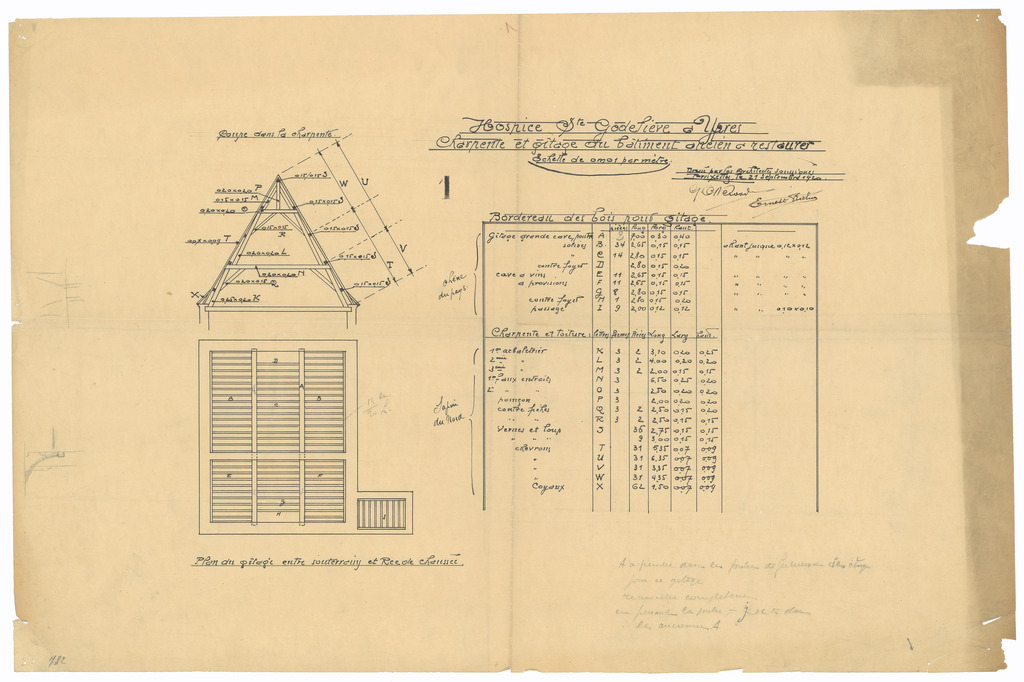 Coupe dans la charpente.
Hospice Ste Godeliève a Ypres
Charpente et gîtage du bâtiment ancien a restaurer
Echelle de 0m01 par mètre.
Dressé par les Architectes soussignés
le 21 Septembre 1920
1
P
0,20x0,20
M
0,15x0,15
O
0,20x0,20
0,15/0,15 S
W
U
0,15x0,15 S
0,15x0,15
R
T
L
0,20x0,20
V
0,15x0,15 S
N
Q
T
0,15x0,15 S
X
K
D
A
B
C
B
E
F
G
H
I
Plan du gîtage entre souterrains et Rez de chaussée.
Bordereau des bois pour Gîtage.
pièces Long Larg Haut.
Gîtage grande cave, poutre A 3 7,00 0,30 0,40
solives B. 34 2,65 0,15 0,15 allant jusque 0,12x0,12
" C 14 2,80 0,15 0,15 " " "
contre foyer D 2,80 0,15 0,20
cave a vins E 11 2,65 0,15 0,15 " " "
a provisions F 11 2,65 0,15 0,15 " " "
G 8 2,80 0,15 0,15 " " "
contre foyer H 1 2,80 0,15 0,20
passage I 9 2,00 0,12 0,12 " " 0,10x0,10
chêne
du pays
Charpente et toiture: lettres Fermes Pièces Long Larg Haut.
1er arbalétrier K 3 2 3,10 0,20 0,25
2me " L 3 2 4,00 0,20 0,20
3me " M 3 2 2,00 0,15 0,15
1er faux entraits N 3 6,50 0,25 0,20
2e " " O 3 2,50 0,20 0,20
poinçon P 3 2,00 0,20 0,20
contre fiches Q 3 2 2,50 0,15 0,20
" " R 3 2 2,50 0,15 0,15
Vernes et loup S 36 2,75 0,15 0,15
" " " 9 3,00 0,15 0,15
chevrons T 31 5,35 0,07 0,09
" U 31 6,35 0,07 0,09
" V 31 3,35 0,07 0,09
" W 31 4,35 0,07 0,09
Coyaux X 62 1,50 0,07 0,09
Sapin
du Nord
dans les
pour ce gîtage
les anciennes A
782